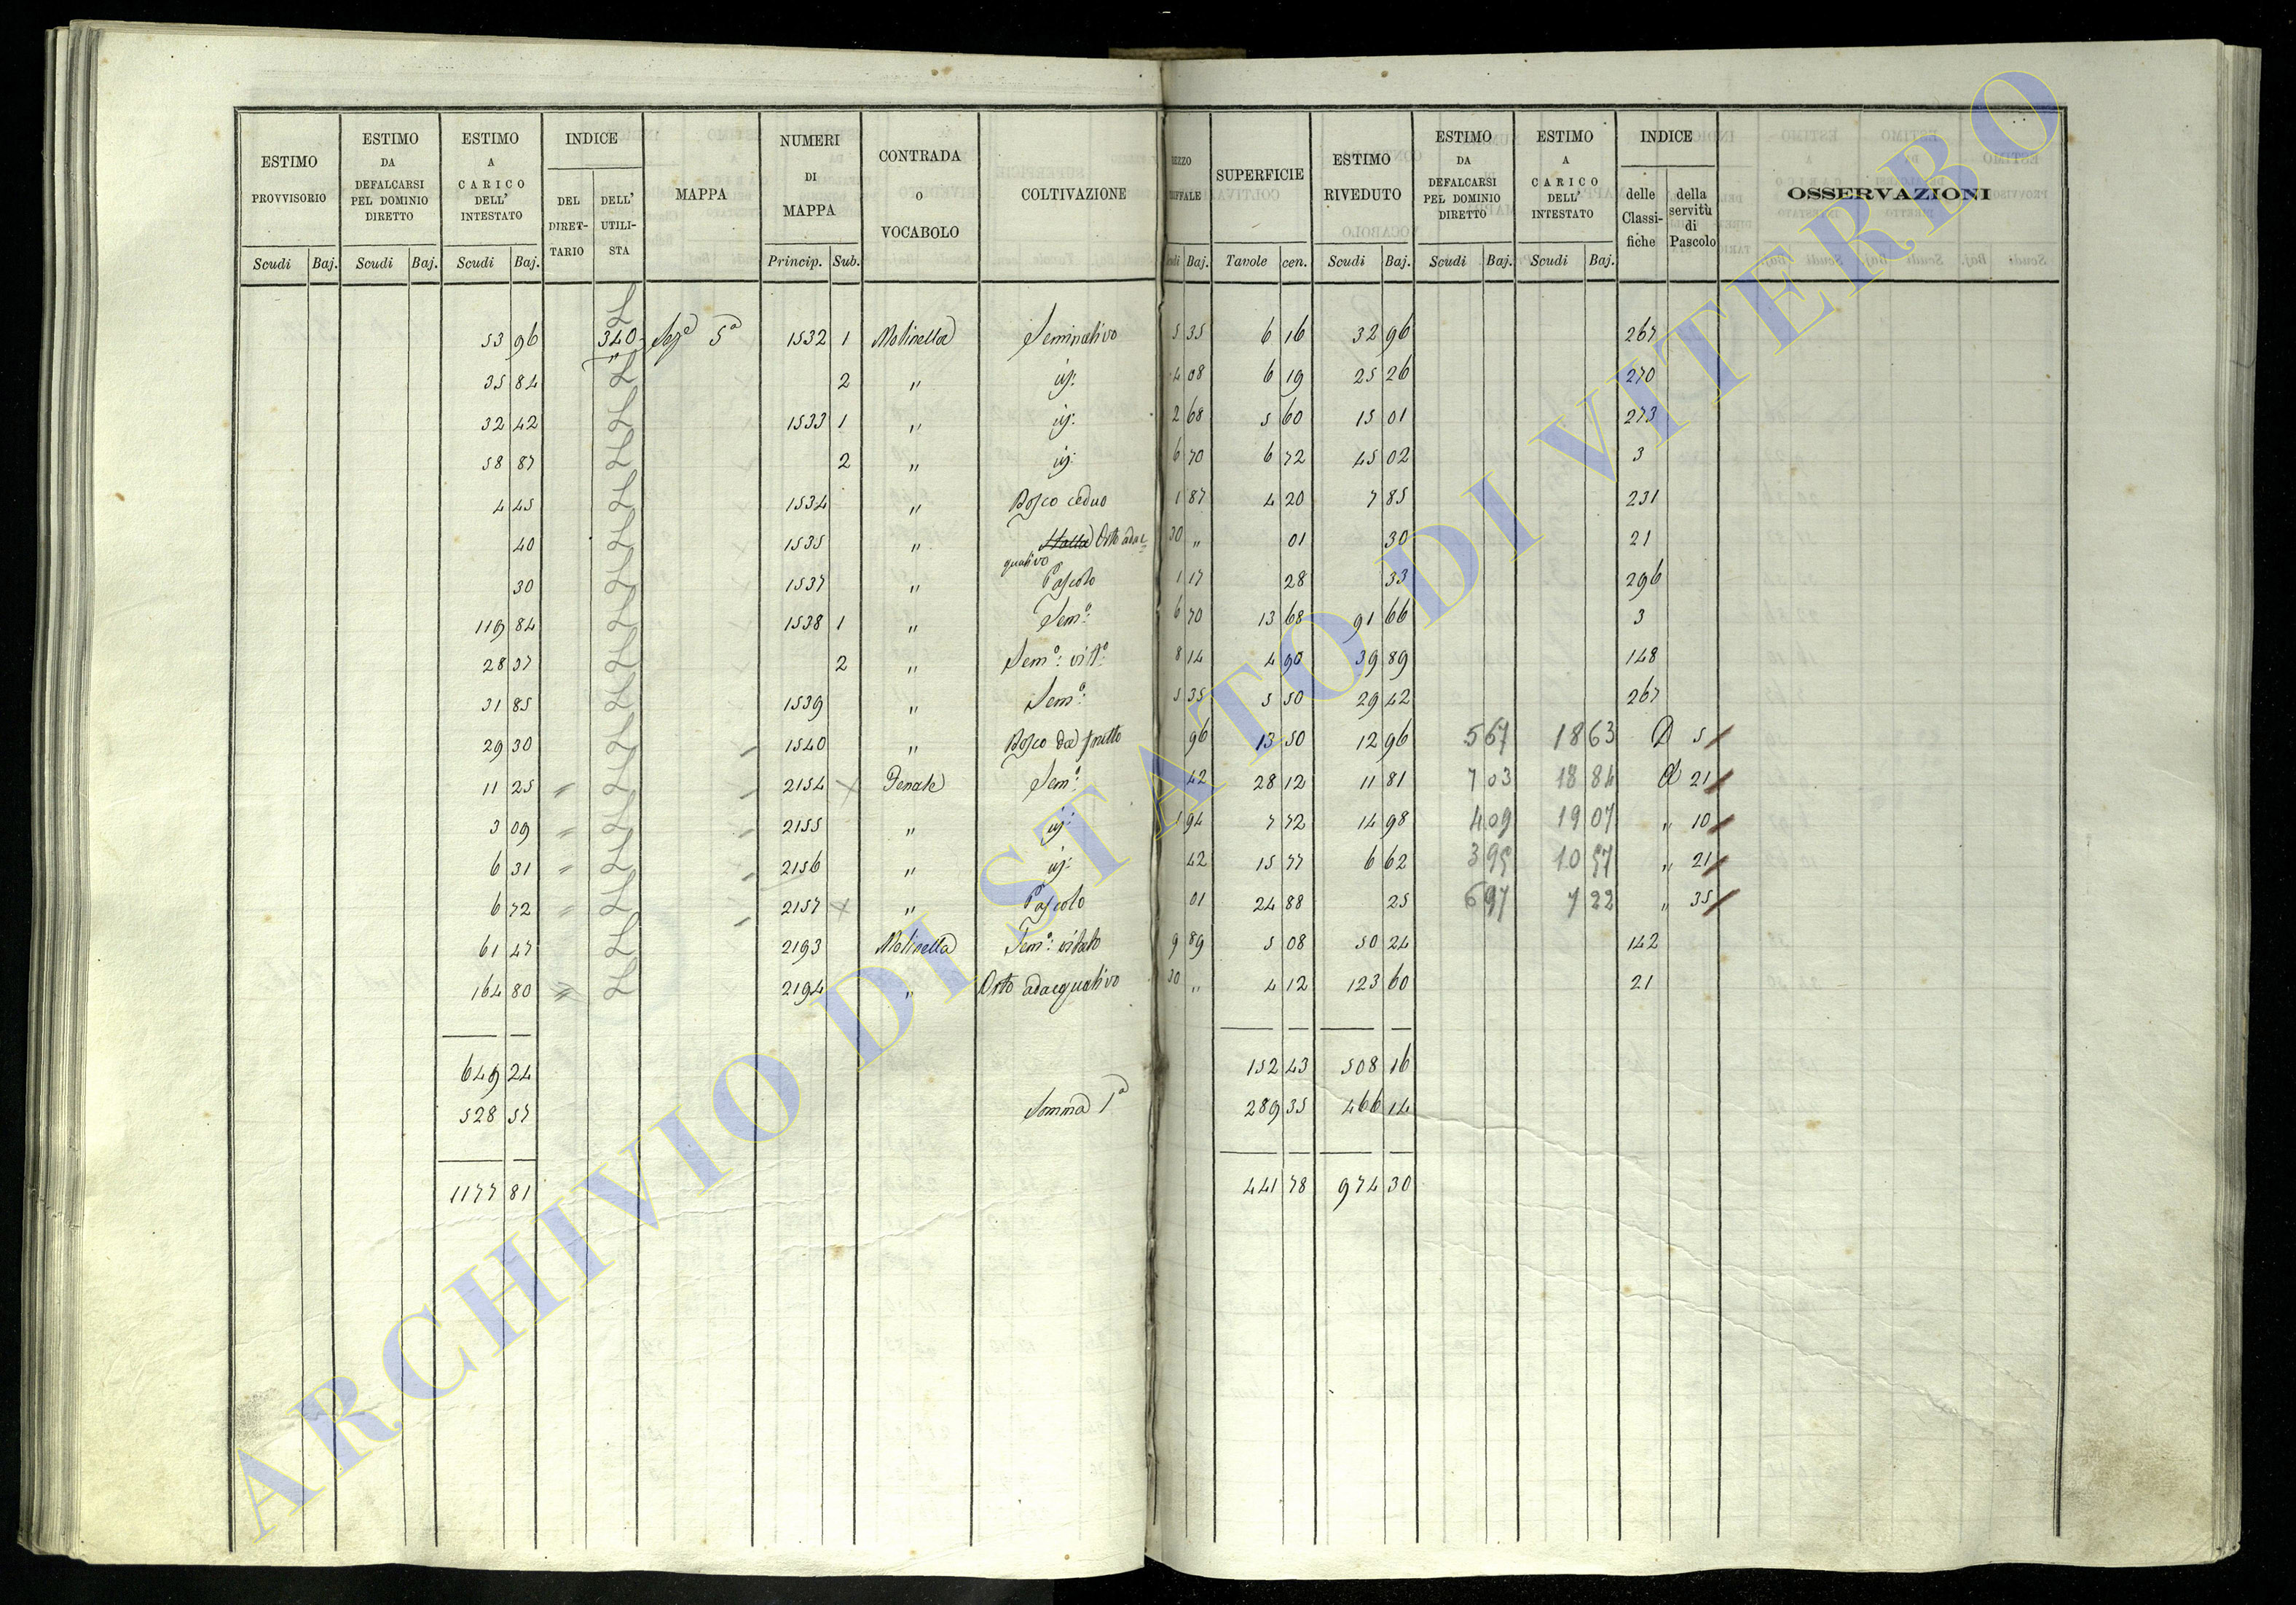 ESTIMO PROVVISORIO | ESTIMO DA DEFALCARSI PEL DOMINIO DIRETTO | ESTIMO A CARICO DELL' INTESTATO | INDICE | MAPPA | NUMERI DI MAPPA | CONTRADA O VOCABOLO | COLTIVAZIONE | SUPERFICIE | ESTIMO RIVEDUTO | ESTIMO DA DEFALCARSI PEL DOMINIO DIRETTO | ESTIMO A CARICO DELL' INTESTATO | INDICE | OSSERVAZIONI
DEL DIRETTARIO | DELL' UTILISTA | delle Classifiche | della servitù di Pascolo
Scudi | Baj. | Scudi | Baj. | Scudi | Baj. | Princip. | Sub. | Baj. | Tavole | cen. | Scudi | Baj. | Scudi | Baj. | Scudi | Baj.
53 96 | 340 | 5ª | 1532 | 1 | Molinella | Seminativo | 5 35 | 6 16 | 32 96 | 267
35 84 | 2 | " | 4 08 | 6 19 | 25 26 | 270
32 42 | 1533 | 1 | " | 2 68 | 5 60 | 15 01 | 273
58 87 | 2 | " | 6 70 | 6 72 | 45 02 | 3
4 45 | 1534 | " | Bosco ceduo | 1 87 | 4 20 | 7 85 | 231
40 | 1535 | " | Stalla Orto adacquativo | 30 " | 01 | 30 | 21
30 | 1537 | " | Pascolo | 1 17 | 28 | 33 | 296
119 84 | 1538 | 1 | " | Semº: | 6 70 | 13 68 | 91 66 | 3
28 37 | 2 | " | Semº: vitº: | 8 14 | 4 90 | 39 89 | 148
31 85 | 1539 | " | Semº: | 5 35 | 5 50 | 29 42 | 267
29 30 | 1540 | " | Bosco da frutto | 96 | 13 50 | 12 96 | 5 67 | 18 63 | D 5
11 25 | 2154 | Semº: | 42 | 28 12 | 11 81 | 7 03 | 18 84 | 21
3 09 | 2155 | " | 1 94 | 7 72 | 14 98 | 4 09 | 19 07 | " 10
6 31 | 2156 | " | 42 | 15 77 | 6 62 | 3 95 | 10 57 | " 21
6 72 | 2157 | " | Pascolo | 01 | 24 88 | 25 | 6 97 | 7 22 | " 35
61 47 | 2193 | Molinella | Semº: vitato | 9 89 | 5 08 | 50 24 | 142
164 80 | 2194 | " | Orto adacquativo | 30 " | 4 12 | 123 60 | 21
649 24 | 152 43 | 508 16
528 57 | Somma 1ª | 289 35 | 466 14
1177 81 | 441 78 | 974 30
ARCHIVIO DI STATO DI VITERBO